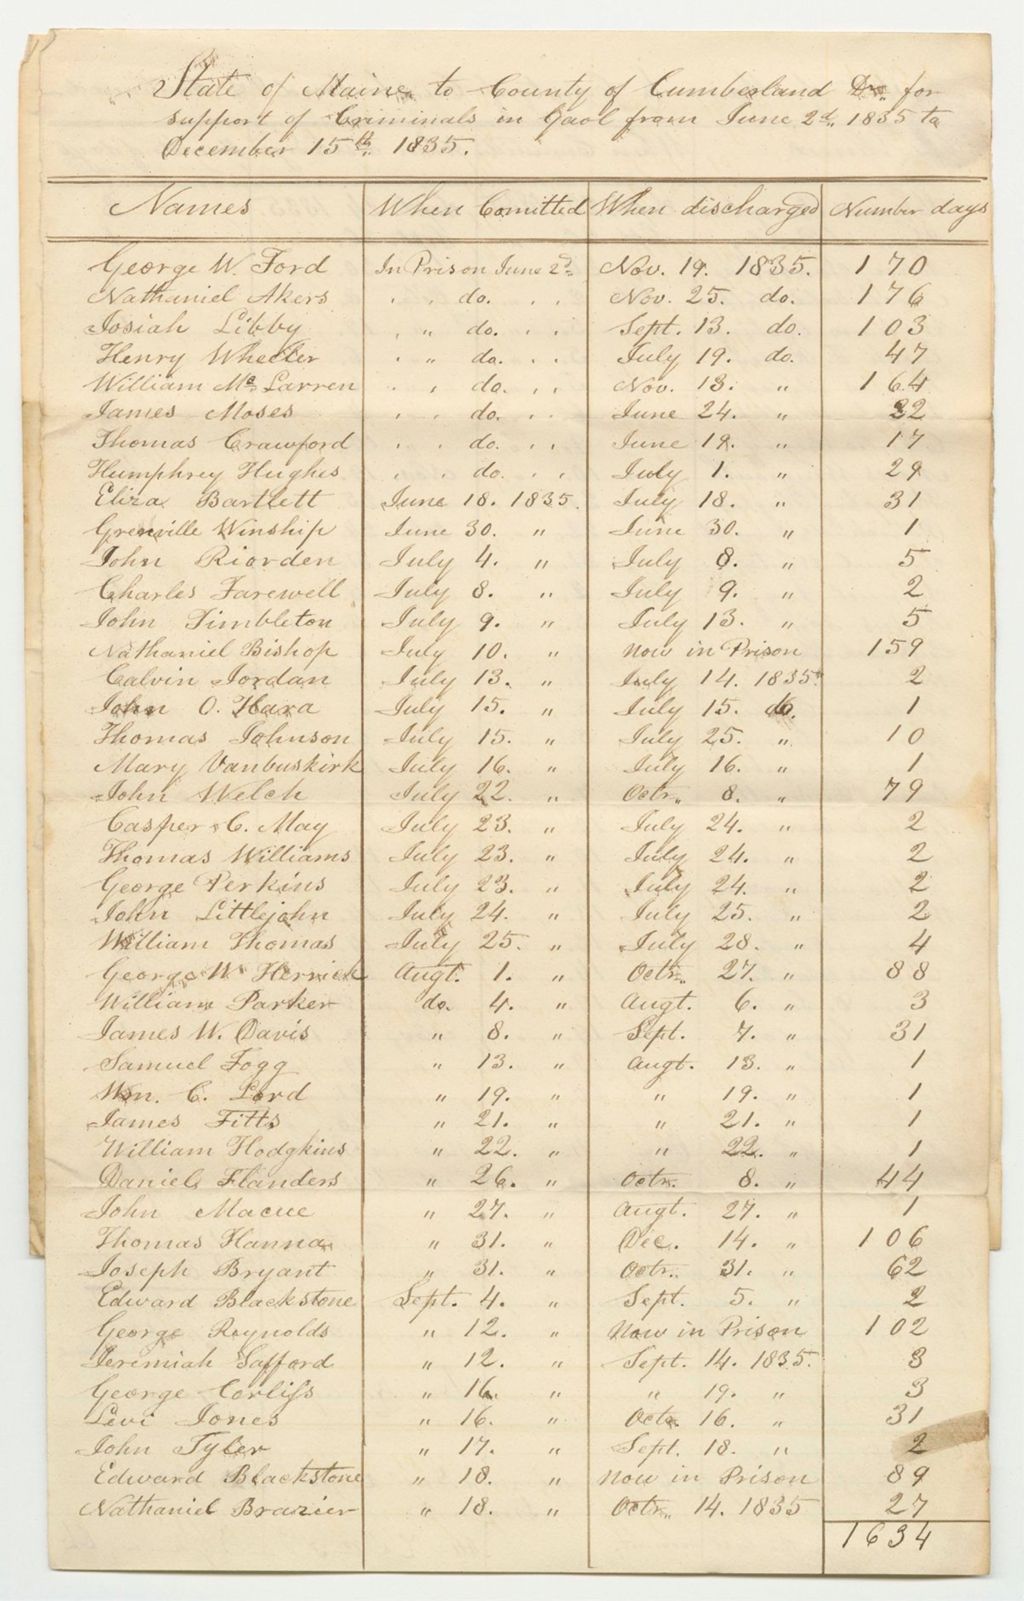 State of Maine to County of Cumberland Dr. for
support of Criminals in Gaol from June 2d. 1835 to
December 15th. 1835.
Names When Comitted When discharged Number days
George W. Ford In Prison June 2d= Nov. 19. 1835. 170
Nathaniel Akers " " do. " " Nov. 25. do. 176
Josiah Libby " " do. " " Sept. 13. do. 103
Henry Wheeler " " do. " " July 19. do. 47
William Mc Larren " " do. " " Nov. 13. " 164
James Moses " " do. " " June 24. " 22
Thomas Crawford " " do. " " June 19. " 17
Humphrey Hughes " " do. " " July 1. " 29
Eliza Bartlett June 18. 1835. July 18. " 31
Grenville Winship June 30. " June 30. " 1
John Riorden July 4. " July 8. " 5
Charles Farewell July 8. " July 9. " 2
John Timbleton July 9. " July 13. " 5
Nathaniel Bishop July 10. " Now in Prison 159
Calvin Jordan July 13. " July 14. 1835. 2
John O. Hara July 15. " July 15. do. 1
Thomas Johnson July 15. " July 25. " 10
Mary Vanbuskirk July 16. " July 16. " 1
John Welch July 22. " Octr. 8. " 79
Casper C. May July 23. " July 24. " 2
Thomas Williams July 23. " July 24. " 2
George Perkins July 23. " July 24. " 2
John Littlejohn July 24. " July 25. " 2
William Thomas July 25. " July 28. " 4
George W. Herrick Augt. 1. " Octr. 27. " 88
William Parker do. 4. " Augt. 6. " 3
James W. Davis " 8. " Sept. 7. " 31
Samuel Fogg " 13. " Augt. 13. " 1
Wm. C. Lord " 19. " " 19. " 1
James Fitts " 21. " " 21. " 1
William Hodgkins " 22. " " 22. " 1
Daniel Flanders " 26. " Octr. 8. " 44
John Macue " 27. " Augt. 27. " 1
Thomas Hanna " 31. " Dec. 14. " 106
Joseph Bryant " 31. " Octr. 31. " 62
Edward Blackstone Sept. 4. " Sept. 5. " 2
George Reynolds " 12. " Now in Prison 102
Jeremiah Safford " 12. " Sept. 14. 1835. 3
George Corliss " 16. " " 19. " 3
Levi Jones " 16. " Octr. 16. " 31
John Tyler " 17. " Sept. 18. " 2
Edward Blackstone " 18. " Now in Prison 89
Nathaniel Brazier " 18. " Octr. 14. 1835 27
1634